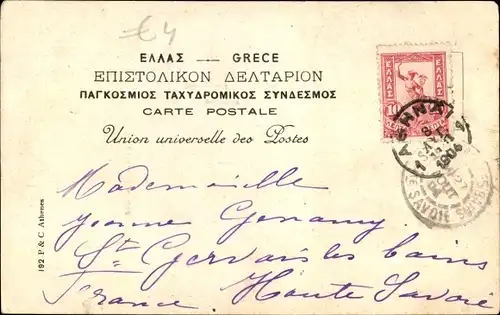 €4
ΕΛΛΑΣ — GRECE
ΕΠΙΣΤΟΛΙΚΟΝ ΔΕΛΤΑΡΙΟΝ
ΠΑΓΚΟΣΜΙΟΣ ΤΑΧΥΔΡΟΜΙΚΟΣ ΣΥΝΔΕΣΜΟΣ
CARTE POSTALE
Union universelle des Postes
ΕΛΛΑΣ
10
ΑΘΗΝΑΙ
1904
Mademoiselle
Yvonne
St Gervais les bains
France Haute Savoie
192 P & C Athenes